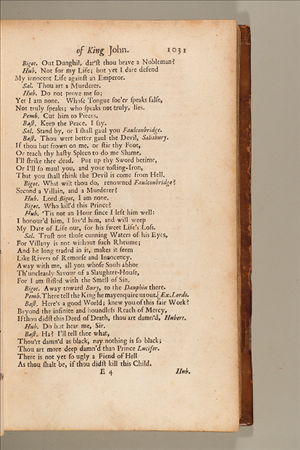 of King John. 1031
Bigot. Out Dunghil, dar'st thou brave a Nobleman?
Hub. Not for my Life; but yet I dare defend
My innocent Life against an Emperor.
Sal. Thou art a Murderer.
Hub. Do not prove me so;
Yet I am none. Whose Tongue soe'er speaks false,
Not truly speaks; who speaks not truly, lies.
Pemb. Cut him to Pieces.
Bast. Keep the Peace, I say.
Sal. Stand by, or I shall gaul you Faulconbridge.
Bast. Thou wert better gaul the Devil, Salisbury.
If thou but frown on me, or stir thy Foot,
Or teach thy hasty Spleen to do me Shame,
I'll strike thee dead. Put up thy Sword betime,
Or I'll so maul you, and your tosting-Iron,
That you shall think the Devil is come from Hell.
Bigot. What wilt thou do, renowned Faulconbridge?
Second a Villain, and a Murderer?
Hub. Lord Bigot, I am none.
Bigot. Who kill'd this Prince?
Hub. 'Tis not an Hour since I left him well:
I honour'd him, I lov'd him, and will weep
My Date of Life out, for his sweet Life's Loss.
Sal. Trust not those cunning Waters of his Eyes,
For Villany is not without such Rheume;
And he long traded in it, makes it seem
Like Rivers of Remorse and Innocency.
Away with me, all you whose Souls abhor
Th'uncleanly Savour of a Slaughter-House,
For I am stifled with the Smell of Sin.
Bigot. Away toward Bury, to the Dauphin there.
Pemb. There tell the King he may enquire us out. Ex. Lords.
Bast. Here's a good World; knew you of this fair Work?
Beyond the infinite and boundless Reach of Mercy,
If thou didst this Deed of Death, thou art damn'd, Hubert.
Hub. Do but hear me, Sir.
Bast. Ha? I'll tell thee what,
Thou'rt damn'd as black, nay nothing is so black;
Thou art more deep damn'd than Prince Lucifer.
There is not yet so ugly a Fiend of Hell
As thou shalt be, if thou didst kill this Child.
E 4 Hub.